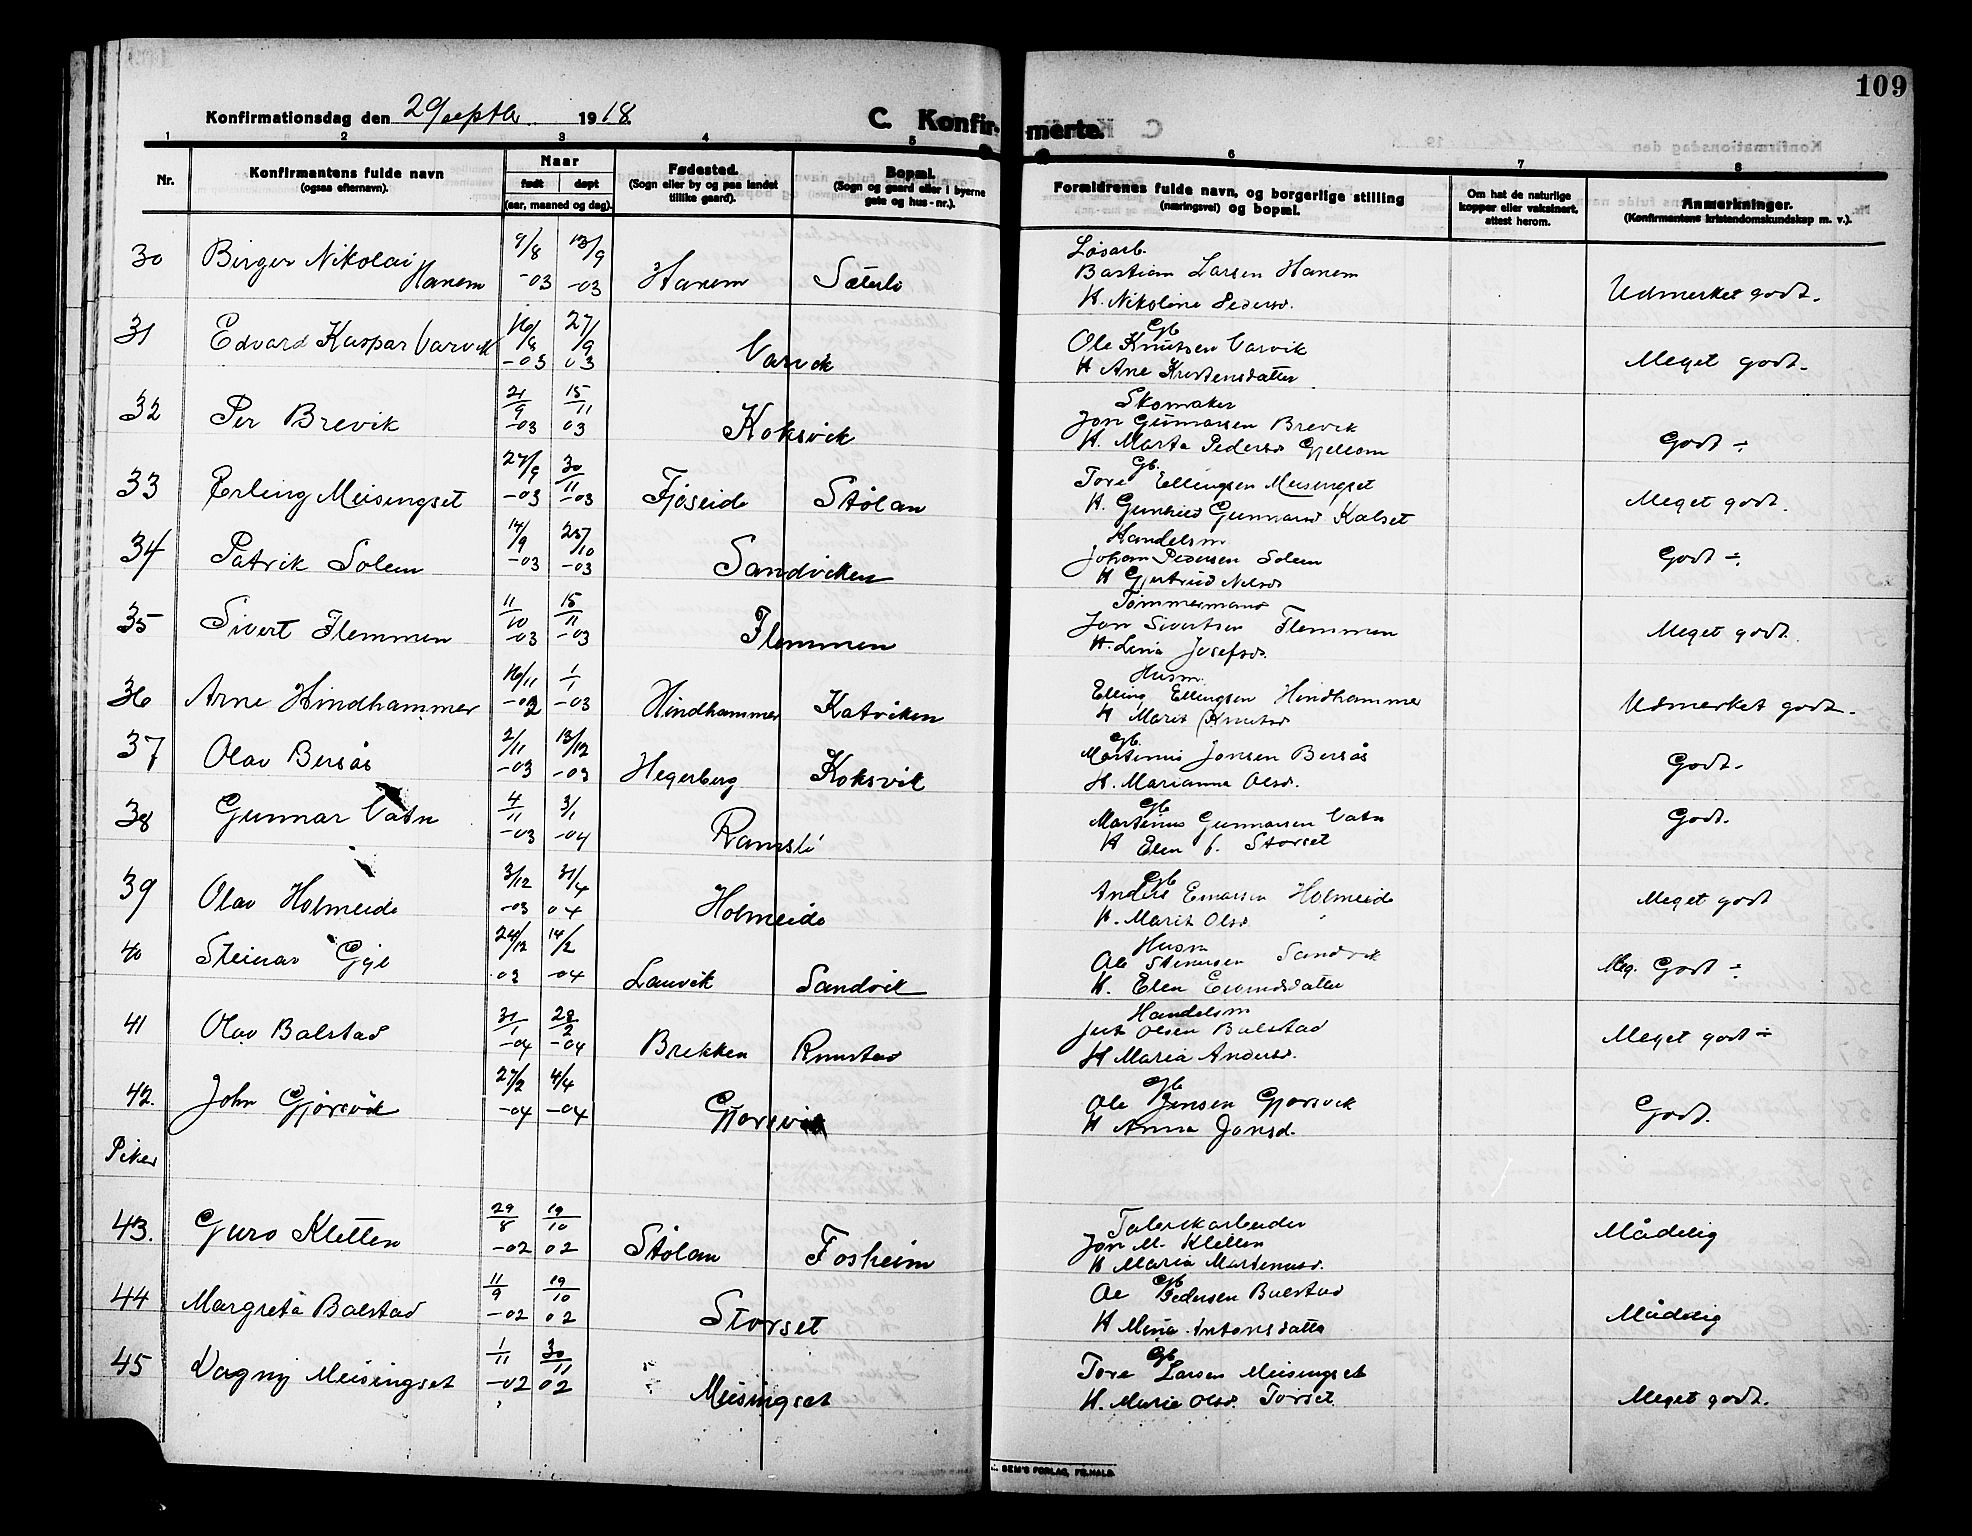 109
Konfirmationsdag den 29 septbr. 1918.
C. Konfirmerte.
1 2 3 4 5 6 7 8
Nr.
Konfirmantens fulde navn
(ogsaa efternavn).
Naar
født døpt
(aar, maaned og dag).
Fødested.
(Sogn eller by og paa landet
tillike gaard).
Bopæl.
(Sogn og gaard eller i byerne
gate og hus-nr.).
Forældrenes fulde navn, og borgerlige stilling
(næringsvei) og bopæl.
Om hat de naturlige
kopper eller vaksinert,
attest herom.
Anmerkninger.
(Konfirmantens kristendomskundskap m. v.).
30 Birger Nikolai Hanem 9/8 -03 13/9 -03 Hanem Sæterli
Løsarb.
Bastian Larsen Hanem
H. Nikoline Pedersd.
Udmerket godt.
31 Edvard Kaspar Varvik 16/8 -03 27/9 03 Varvik
Gb.
Ole Knutsen Varvik
H Ane Kristensdatter
Meget godt.
32 Per Brevik 21/9 -03 15/11 03 Koksvik
Skomaker
Jon Gunnarsen Brevik
H. Marta Pedersd Gjelsom
Godt ÷
33 Erling Meisingset 27/9 -03 30/11 -03 Fjøseide Stølan
Gb.
Tore Ellingsen Meisingset
H. Gunhild Gunnarsd Kalset
Meget godt.
34 Patrik Solem 14/9 -03 25/10 -03 Sandviken
Handelsm
Johan Pedersen Solem
H Gjertrud Nilsd.
Godt ÷
35 Sivert Flemmen 11/10 -03 15/11 -03 Flemmen
Tømmermand
Jon Sivertsen Flemmen
H. Lina Josefsd.
Meget godt.
36 Arne Hindhammer 16/11 -02 1/1 -03 Hindhammer Katviken
Husm.
Elling Ellingsen Hindhammer
H Marit Knutsd
Udmerket godt.
37 Olav Bersås 2/11 -03 13/12 -03 Hegerberg Koksvik
Gb.
Martinus Jonsen Bersås
H. Marianna Olsd.
Godt.
38 Gunnar Vatn 4/11 -03 3/1 -04 Ramsli
Gb
Martinus Gunnarsen Vatn
H Elen f. Storset
Godt.
39 Olav Holmeide 3/12 -03 31/4 04 Holmeide
Gb
Anders Einarsen Holmeide
H. Marit Olsd
Meget godt
40 Steinar Gyl 24/12 03 14/2 -04 Lauvik Sandvik
Husm
Ole Steinarsen Sandvik
H. Elen
Meg. Godt ÷
41 Olav Bolstad 31/1 -04 28/2 -04 Brekken
Handelsm
Olsen Bolstad
H Maria Andersd.
Meget godt ÷
42. John Gjørsvik 27/2 -04 4/4 -04 Gjørsvik
Gb
Ole Jensen Gjørsvik
H Anna Jonsd.
Godt.
Piker
43. Guro Kletten 29/8 -02 19/10 02 Stølan Fosheim
Jon M. Kletten
H Maria Martinusd.
Mådelig
44 Margreta Bolstad 11/9 -02 19/10 02 Storset
Gb
Ole Pedersen Bolstad
H Mina Antonsdatter
Mådelig
45 Dagny Meisingset 1/11 -02 30/11 02 Meisingset
Gb
Tore Larsen Meisingset
H. Marie Olsd. Torset
Meget godt.
SEM'S FORLAG, FR.HALD.